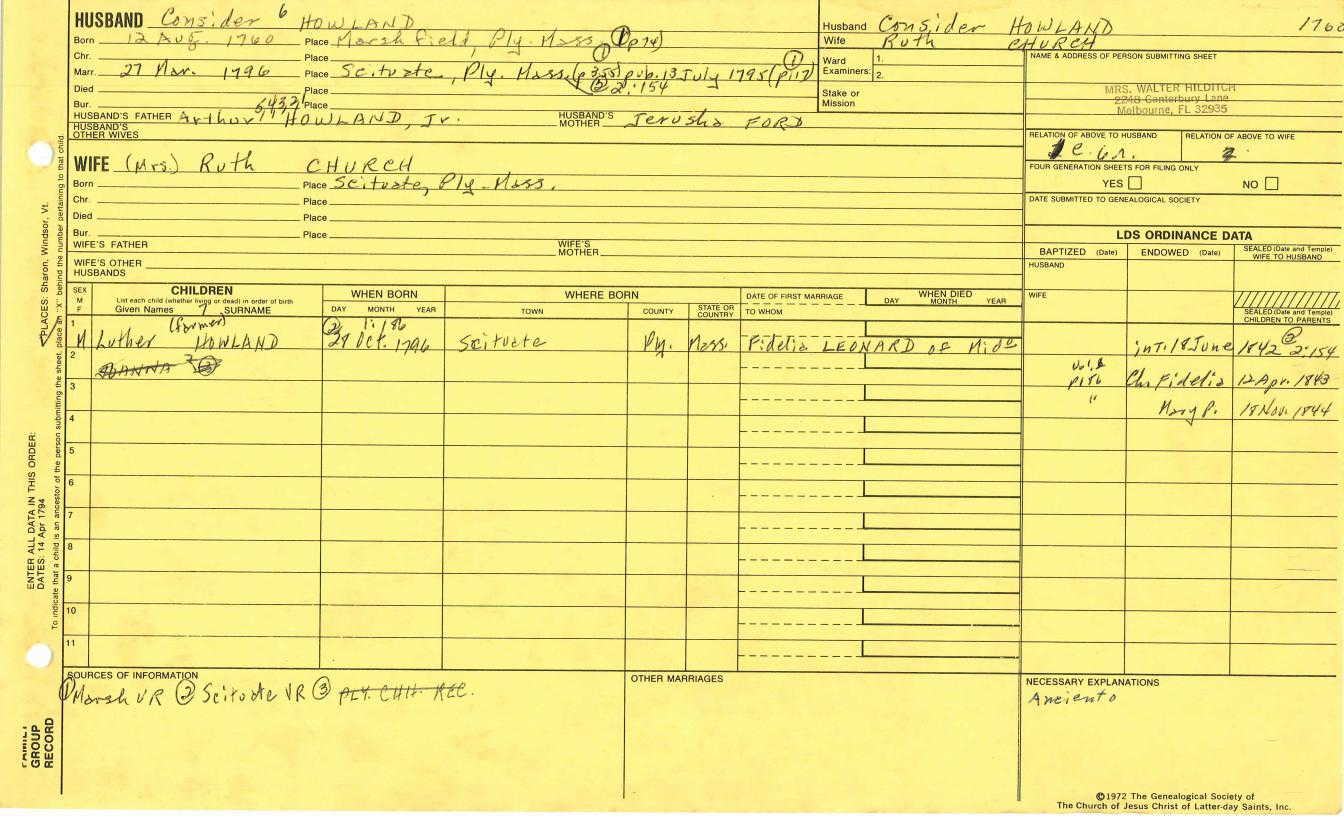 HUSBAND Consider 6 HOWLAND
Born 12 Aug. 1760 Place Marshfield, Ply. Mass. ① (p74)
Chr. Place
Marr. 27 Mar. 1796 Place Scituate, Ply. Mass. ① (p355) pub. 13 July 1795 (p117) ①
② 2:154
Died Place
Bur. Place
5,4,3,2,1
HUSBAND'S FATHER Arthur HOWLAND, Jr. HUSBAND'S MOTHER Jerusha FORD
HUSBAND'S OTHER WIVES
WIFE (Mrs.) Ruth CHURCH
Born Place Scituate, Ply. Mass.
Chr. Place
Died Place
Bur. Place
WIFE'S FATHER WIFE'S MOTHER
WIFE'S OTHER HUSBANDS
Husband Consider HOWLAND 1760
Wife Ruth CHURCH
Ward Examiners: 1.
2.
Stake or Mission
NAME & ADDRESS OF PERSON SUBMITTING SHEET
MRS. WALTER HILDITCH
2248 Canterbury Lane
Melbourne, FL 32935
RELATION OF ABOVE TO HUSBAND RELATION OF ABOVE TO WIFE
FOUR GENERATION SHEETS FOR FILING ONLY
YES NO
DATE SUBMITTED TO GENEALOGICAL SOCIETY
LDS ORDINANCE DATA
BAPTIZED (Date) ENDOWED (Date) SEALED (Date and Temple) WIFE TO HUSBAND
HUSBAND
WIFE
SEALED (Date and Temple) CHILDREN TO PARENTS
SEX M F
CHILDREN
List each child (whether living or dead) in order of birth
Given Names 7 SURNAME
WHEN BORN
DAY MONTH YEAR
WHERE BORN
TOWN COUNTY STATE OR COUNTRY
DATE OF FIRST MARRIAGE
TO WHOM
WHEN DIED
DAY MONTH YEAR
1 (farmer) ② 1:186
M Luther HOWLAND 28 Oct. 1796 Scituate Ply. Mass. Fidelia LEONARD OF Mido int. 18 June 1842 ② 2:154
2 ③
Vol. 1 p186 Ch. Fidelia 12 Apr. 1843
3
" Mary P. 18 Nov. 1844
4
5
6
7
8
9
10
11
SOURCES OF INFORMATION
① Marsh VR ② Scituate VR ③ PLY. CHH. REC.
OTHER MARRIAGES
NECESSARY EXPLANATIONS
Anciento
©1972 The Genealogical Society of
The Church of Jesus Christ of Latter-day Saints, Inc.
PLACES: Sharon, Windsor, Vt.
ENTER ALL DATA IN THIS ORDER:
DATES: 14 Apr 1794
To indicate that a child is an ancestor of the person submitting the sheet, place an "X" behind the number pertaining to that child.
FAMILY
GROUP
RECORD